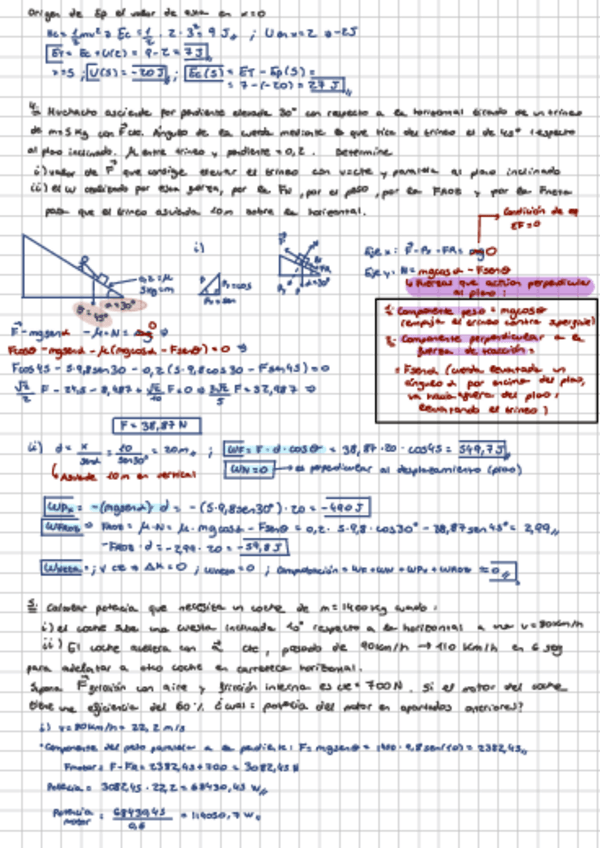 Origen de Ep el valor de esta en x=0
Ec = 1/2 mv² ⇒ Ec = 1/2 · 2 · 3² = 9 J ; U en x=2 ⇒ -2J
ET = Ec + U(2) = 9 - 2 = 7 J
x=5 ; U(5) = -20 J ; Ec(5) = ET - Ep(5) =
= 7 - (-20) = 27 J
4. Muchacho asciende por pendiente elevada 30° con respecto a la horizontal tirando de un trineo
de m=5Kg con F cte. Ángulo de la cuerda mediante la que tira del trineo el de 45° respecto
al plano inclinado. μ entre trineo y pendiente = 0,2. Determine
i) valor de F que consigue elevar el trineo con v=cte y paralela al plano inclinado
ii) el W realizado por esta fuerza, por la FN, por el peso, por la FROZ y por la Fneta
para que el trineo ascienda 10m sobre la horizontal.
Condición de eq
ΣF=0
i)
0,2 = μ
5kg = m
α=30°
θ=45°
Eje x: F - Px - FR = 0
Eje y: N = mgcosα - Fsenθ
Fuerzas que actúan perpendicular
al plano:
1. Componente peso = mgcosα
(empuja el trineo contra superficie)
2. Componente perpendicular a la
fuerza de tracción:
= Fsenθ (cuerda levantada un
ángulo θ por encima del plano,
va hacia fuera del plano,
levantando el trineo)
F - mgsenα - μ·N = 0 ⇒
Fcosθ - mgsenα - μ(mgcosα - Fsenθ) = 0 ⇒
Fcos45 - 5·9,8sen30 - 0,2(5·9,8cos30 - Fsen45) = 0
F = 38,87 N
ii) d = x/senα = 10/sen30° = 20m ; WF = F · d · cosθ = 38,87·20·cos45 = 549,7 J
Asciende 10m en vertical
WN = 0 → es perpendicular al desplazamiento (plano)
WPx = -(mgsenα) d = -(5·9,8sen30°)·20 = -490 J
WFROZ ⇒ FROZ = μ·N = μ·mgcosα - Fsenθ = 0,2·5·9,8·cos30 - 38,87sen45° = 2,99
-FROZ·d = -2,99·20 = -59,8 J
WNETA = ; v cte ⇒ ΔK=0 ; Wneto = 0 ; Comprobación = WF + WN + WPx + WROZ ≈ 0
5. Calcular potencia que necesita un coche de m=1400kg cuando:
i) el coche sube una cuesta inclinada 10° respecto a la horizontal a una v=80km/h
ii) El coche acelera con a cte, pasando de 90km/h → 110 km/h en 6 seg
para adelantar a otro coche en carretera horizontal.
Supone F fricción con aire y fricción interna es cte = 700N. Si el motor del coche
tiene una eficiencia del 60% ¿cual = potencia del motor en apartados anteriores?
i) v=80km/h = 22,2 m/s
·Componente del peso paralela a la pendiente: F = mgsenθ = 1400·9,8sen(10) = 2382,45
Fmotor = F - FR = 2382,45 + 700 = 3082,45 N
Potencia = 3082,45 · 22,2 = 68430,45 W
Potencia motor = 68430,45/0,6 = 114050,7 W